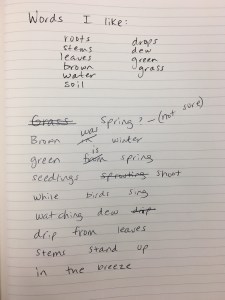 Words I like:
roots drops
stems dew
leaves green
brown grass
water
soil
Grass Spring? - (not sure)
was
Brown is winter
is
green from spring
seedlings sprouting shoot
while birds sing
watching dew drip
drip from leaves
stems stand up
in the breeze